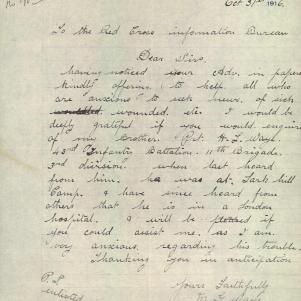 Oct 31st 1916.
To the Red Cross information Bureau
Dear Sirs,
having noticed your Adv. in papers
kindly offering to help all who
are anxious to seek news, of sick
wounded, etc. I would be
deeply grateful if you would enquire
of my Brother. Pvt. H. L.
43rd Infantry Battalion. 11th Brigade.
3rd division. when last heard
from him, he was at Lark Hill
Camp, I have since heard from
others that he is in a London
hospital, I will be pleased if
you could assist me, as I am
very anxious regarding his trouble.
Thanking you in anticipation
Yours Faithfully
P.S.
enlisted